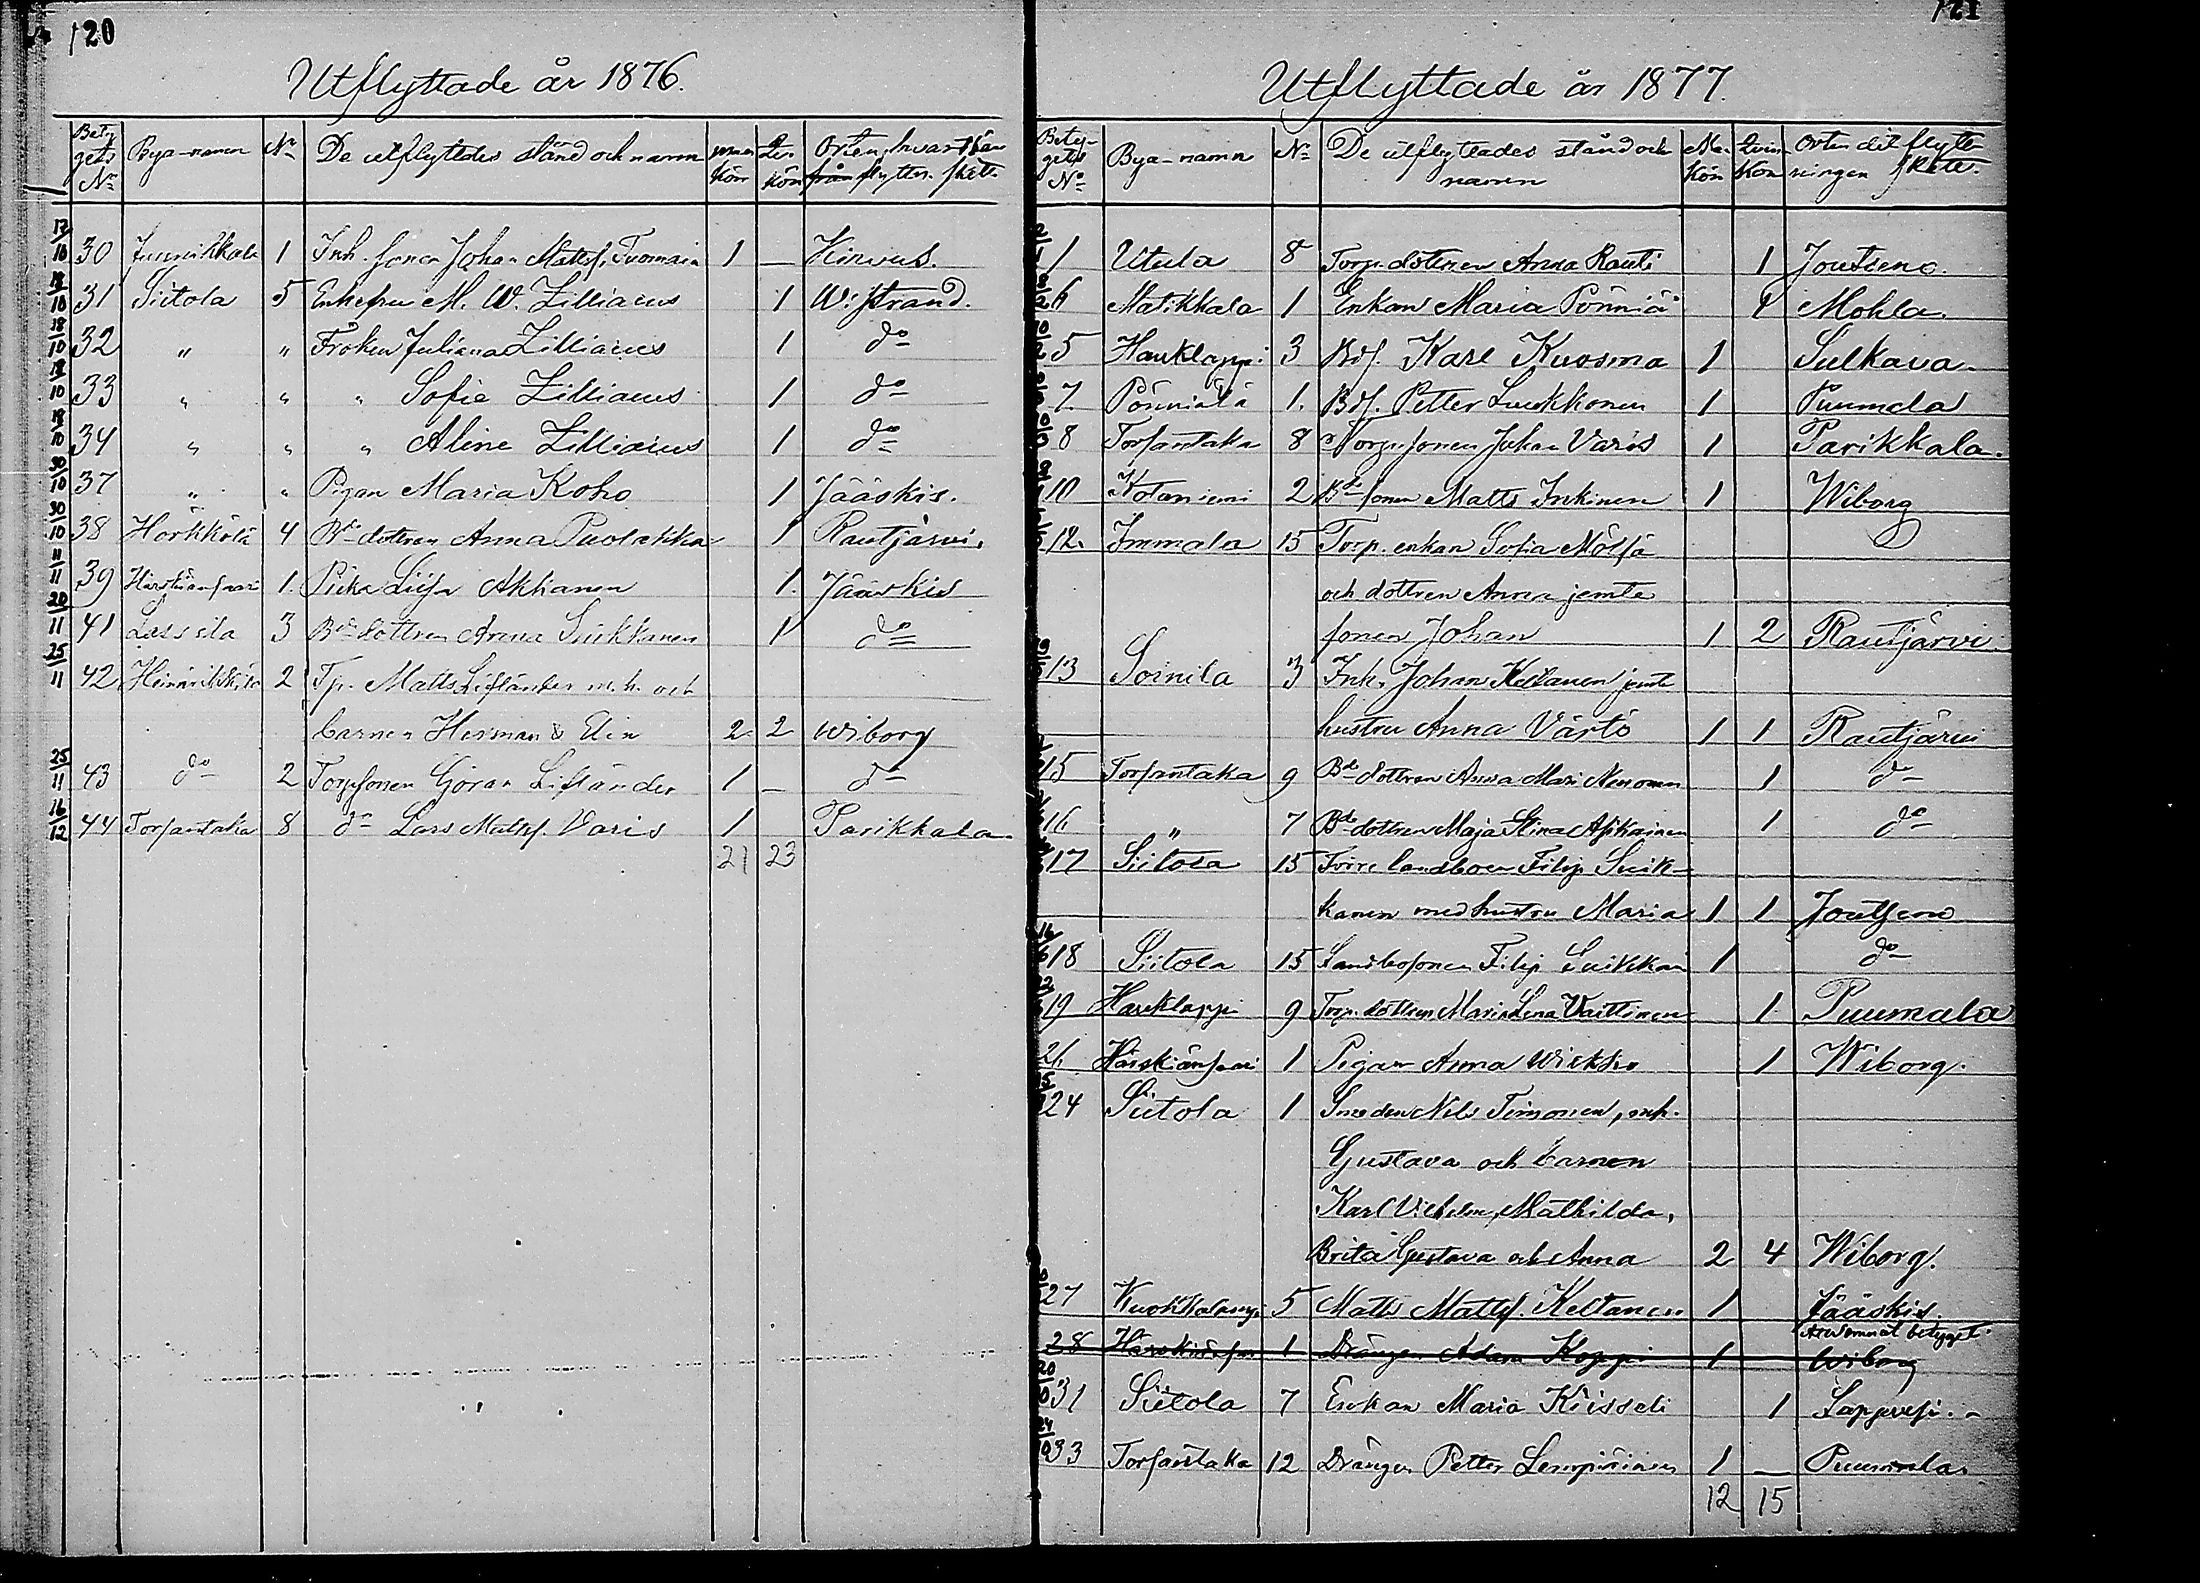 120
Utflyttade år 1876.
Bety gets No Bya-namn No De utflyttades stånd och namn Man kön Qvin kön Orten, hvart från flyttn. skett
17/10 30 Junnikkala 1 Inh. sonen Johan Mattss. Tuomain 1 — Kirvus.
18/10 31 Siitola 5 Enkefru M. W. Zilliacus 1 W:strand.
18/10 32 " " Fröken Juliana Zilliacus 1 do
18/10 33 " " " Sofie Zilliacus 1 do
18/10 34 " " " Aline Zilliacus 1 do
30/10 37 " " Pigan Maria Koho 1 Jääskis.
30/10 38 Härkkölä 4 Bde dottren Anna Puolakka 1 Rautjärvi.
11/11 39 1. Piika Liisa Akkanen 1. Jääskis
20/11 41 Lassila 3 Bde dottren Anna Suikkanen 1 do
25/11 42 2 Tp. Matts Lifländer m. h. och
barnen Herman & Elin 2 2 Wiborg
25/11 43 do 2 Torpsonen Göran Lifländer 1 — do
16/12 44 Torsantaka 8 do Lars Mattss. Varis 1 Parikkala
21 23
121
Utflyttade år 1877.
Betygets No Bya-namn No De utflyttades stånd och namn Mankön Qvinkön Orten dit flyttningen skett.
1 Utula 8 Torp. dottren Anna Rauti 1 Joutseno.
6 Matikkala 1 Enkan Maria Pönniä 1 Mohla.
5 Hauklappi 3 Bds. Karl Kuosma 1 Sulkava
7. Pönniälä 1. Bds. Petter Luukkonen 1 Puumala
8 Torsantaka 8 Torpsonen Johan Varis 1 Parikkala.
10 Kotaniemi 2 Bde sonen Matts Inkinen 1 Wiborg
12. Immala 15 Torp. enkan Sofia Mölsä
och dottren Anna jemte
sonen Johan 1 2 Rautjärvi
13 Soinila 3 Inh. Johan Keltanen jemte
hustru Anna Värtö 1 1 Rautjärvi
15 Torsantaka 9 Bde dottren Anna Mari Nenonen 1 do
16 " 7 Bde dottren Maja Stina Asikainen 1 do
17 Siitola 15 Förre landboen Filip Suik-
kanen med hustru Maria 1 1 Joutseno
18 Siitola 15 Landbosonen Filip Suikkan 1 do
19 Hauklappi 9 Torp. dottren Maria Lena Vaittinen 1 Puumala
21. Härskiänsaari 1 Pigan Anna 1 Wiborg.
24 Siitola 1 Smeden Nils Timonen, enh.
Gustava och barnen
Karl Vilhelm, Mathilda,
Brita Gustava och Anna 2 4 Wiborg.
27 Kuokkalampi 5 Matts Mattss. Keltanen 1 Jääskis
betyget
28 1 Drängen Adam Koppi 1 Wiborg
31 Siitola 7 Enkan Maria Kiisseli 1 Lappvesi.
33 Torsantaka 12 Drängen Petter Lempiäinen 1 — Puumala.
12 15